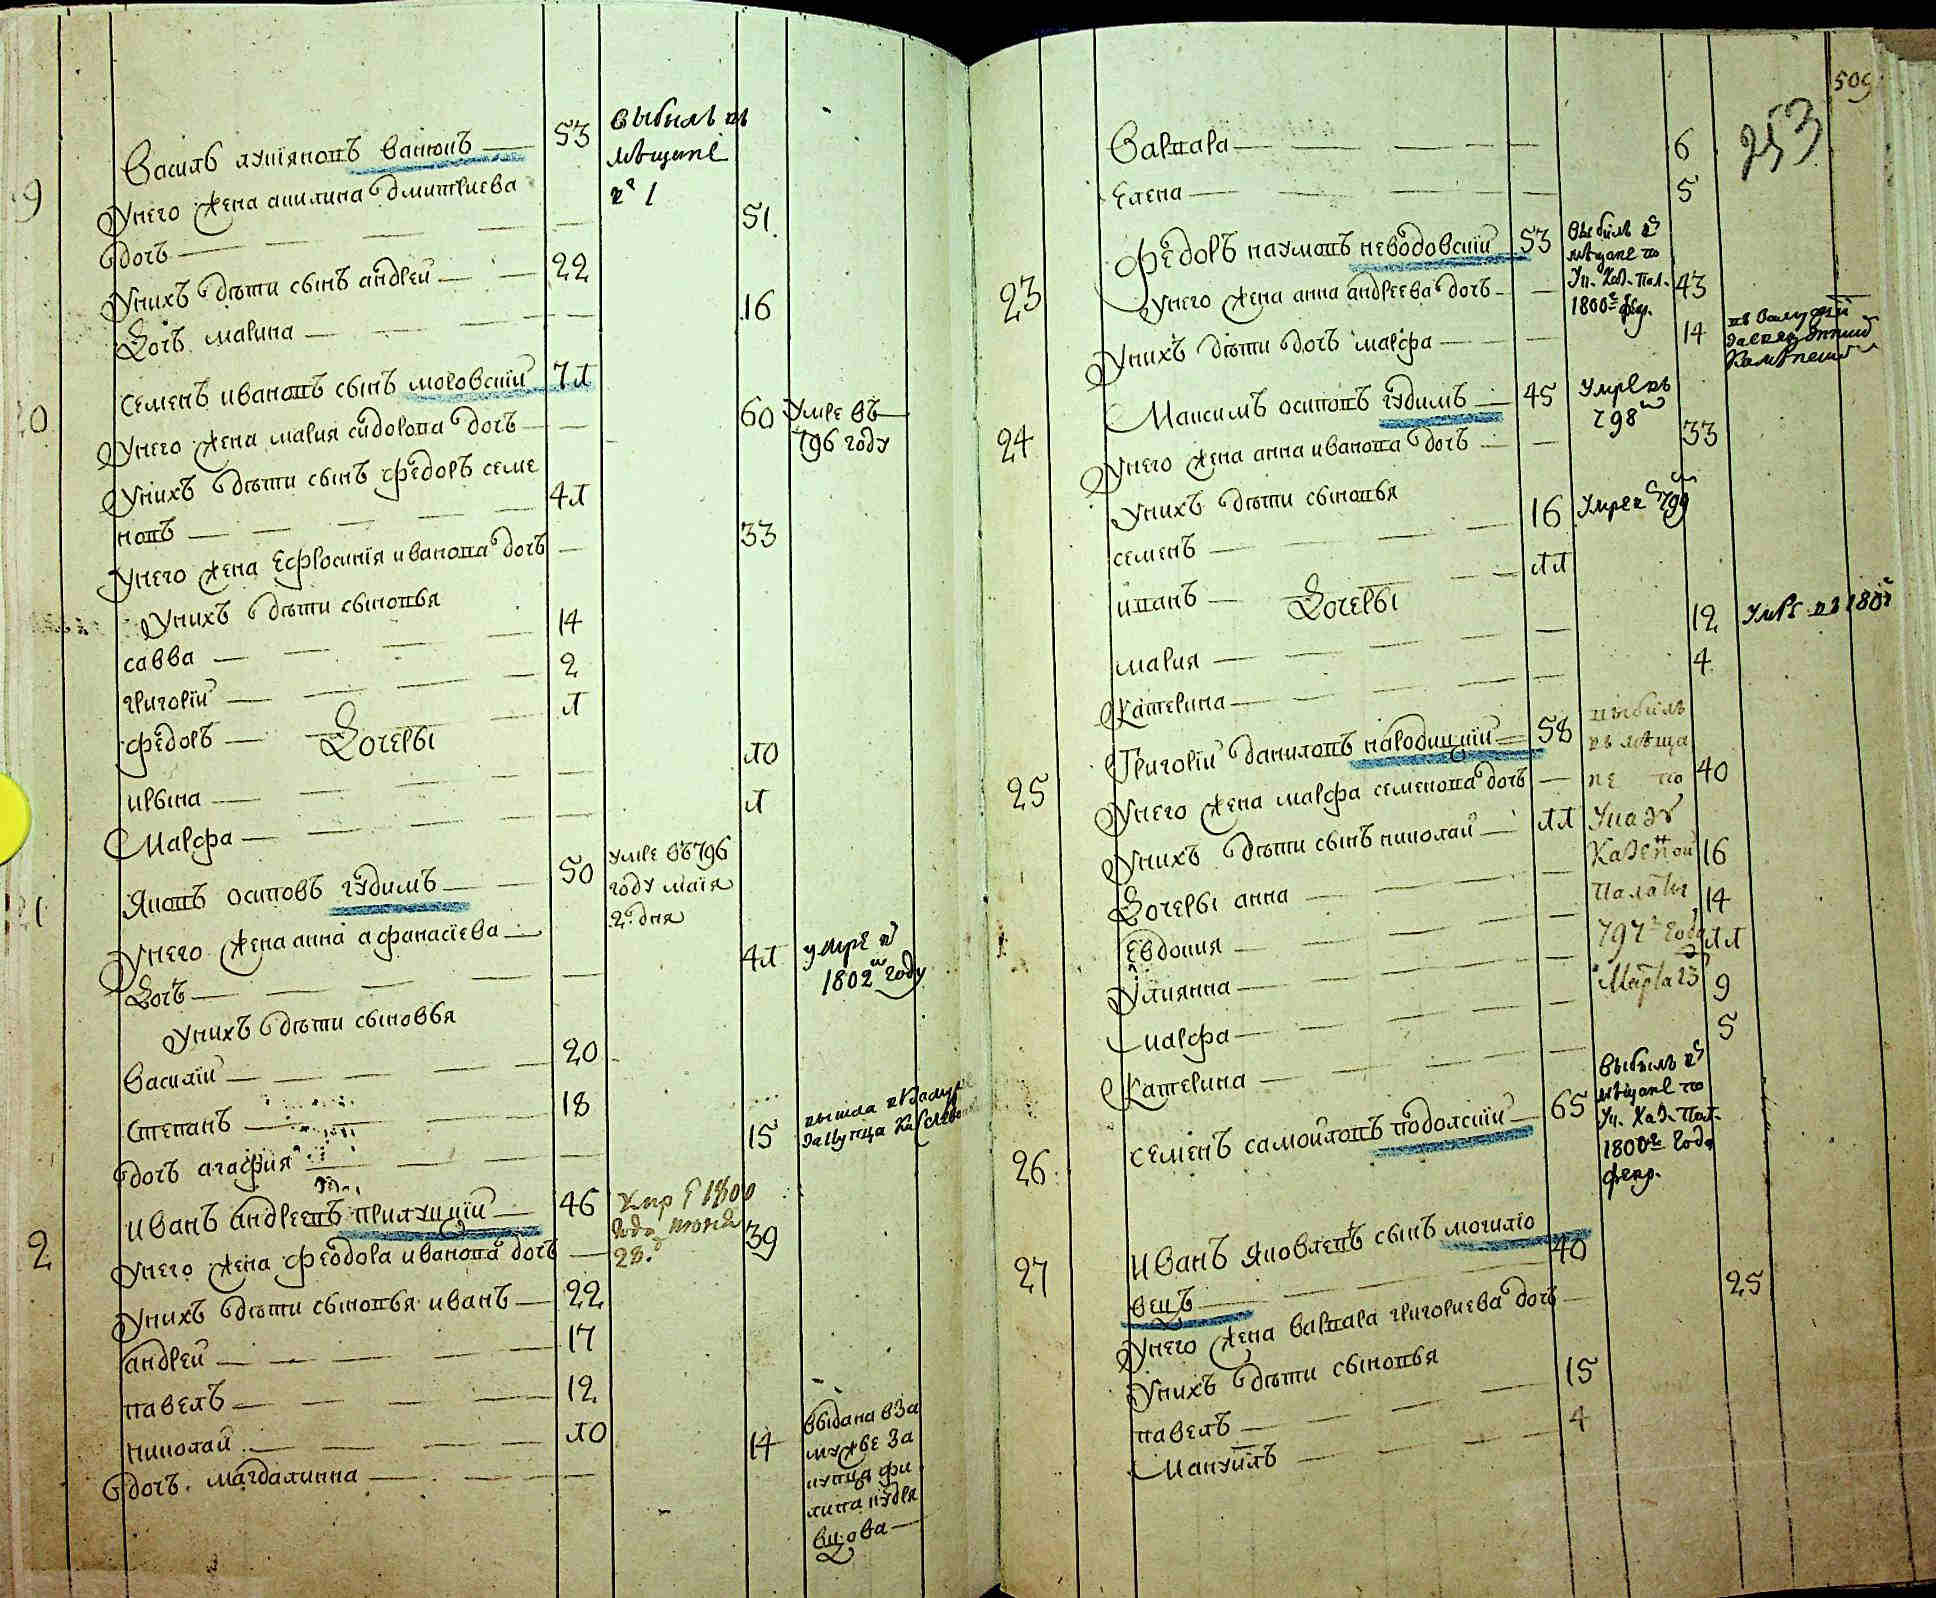 Василь лукіяновъ ванюкъ 53
выбылъ въ
мѣщане
19
Унего жена акилина дмитриева
дочь 51
Унихъ дѣти сынъ андрей 22
Дочь марина 16
20
Семенъ ивановъ сынъ моговский 71
Унего жена мария сидорова дочь 60
Умре въ
796 году
Унихъ дѣти сынъ федоръ семе
новъ 41
Унего жена Ефросинія иванова дочь 33
Унихъ дѣти сыновья
савва 14
григорій 2
федоръ 1
Дочерьи
ирына 10
Марфа 1
21
Яковъ осиповъ гудимъ 50
умре въ 796
году маія
2 дня
Унего жена анна афанасіева
Дочь 41
умре в
1802 году
Унихъ дѣти сыновья
Василій 20
Степанъ 18
дочь агафия 15
2
Иванъ андреевъ прилуцкий 46
Умре 1800
года июня
28
Унего жена феодора иванова дочь 39
Унихъ дѣти сыновья иванъ 22
андрей 17
павелъ 12
николай 10
дочь магдалинна 14
выдана вза
мужье за
купца фи
липа кудря
вцова
509
253
Варвара 6
Елена 5
23
Федоръ наумовъ неводовский 53
Выбылъ в
мѣщане по
Ук. Каз. Пал.
1800 фев.
Унего жена анна андреева дочь 43
Унихъ дѣти дочь марфа 14
24
Максимъ осиповъ гудимъ 45
Умре въ
798
Унего жена анна иванова дочь 33
Унихъ дѣти сыновья
семенъ 16
Умре 799
иванъ 11
Дочерьи
мария 12
Умре в 180
Катерина 4
25
Григорій даниловъ народицкий 58
выбылъ
въ мѣща
не по
Указу
Казеной
Палаты
797 года
Марта 23
Унего жена марфа семенова дочь 40
Унихъ дѣти сынъ николай 11
Дочерьи анна 16
Евдокия 14
Улиянна 11
марфа 9
Катерина 5
26
семенъ самойловъ подолский 65
выбылъ в
мѣщане по
Ук. Каз. Пал.
1800 года
февр.
27
Иванъ Яковлевъ сынъ могиліо
вецъ 40
Унего жена варвара григориева дочь 25
Унихъ дѣти сыновья
павелъ 15
Мануилъ 4